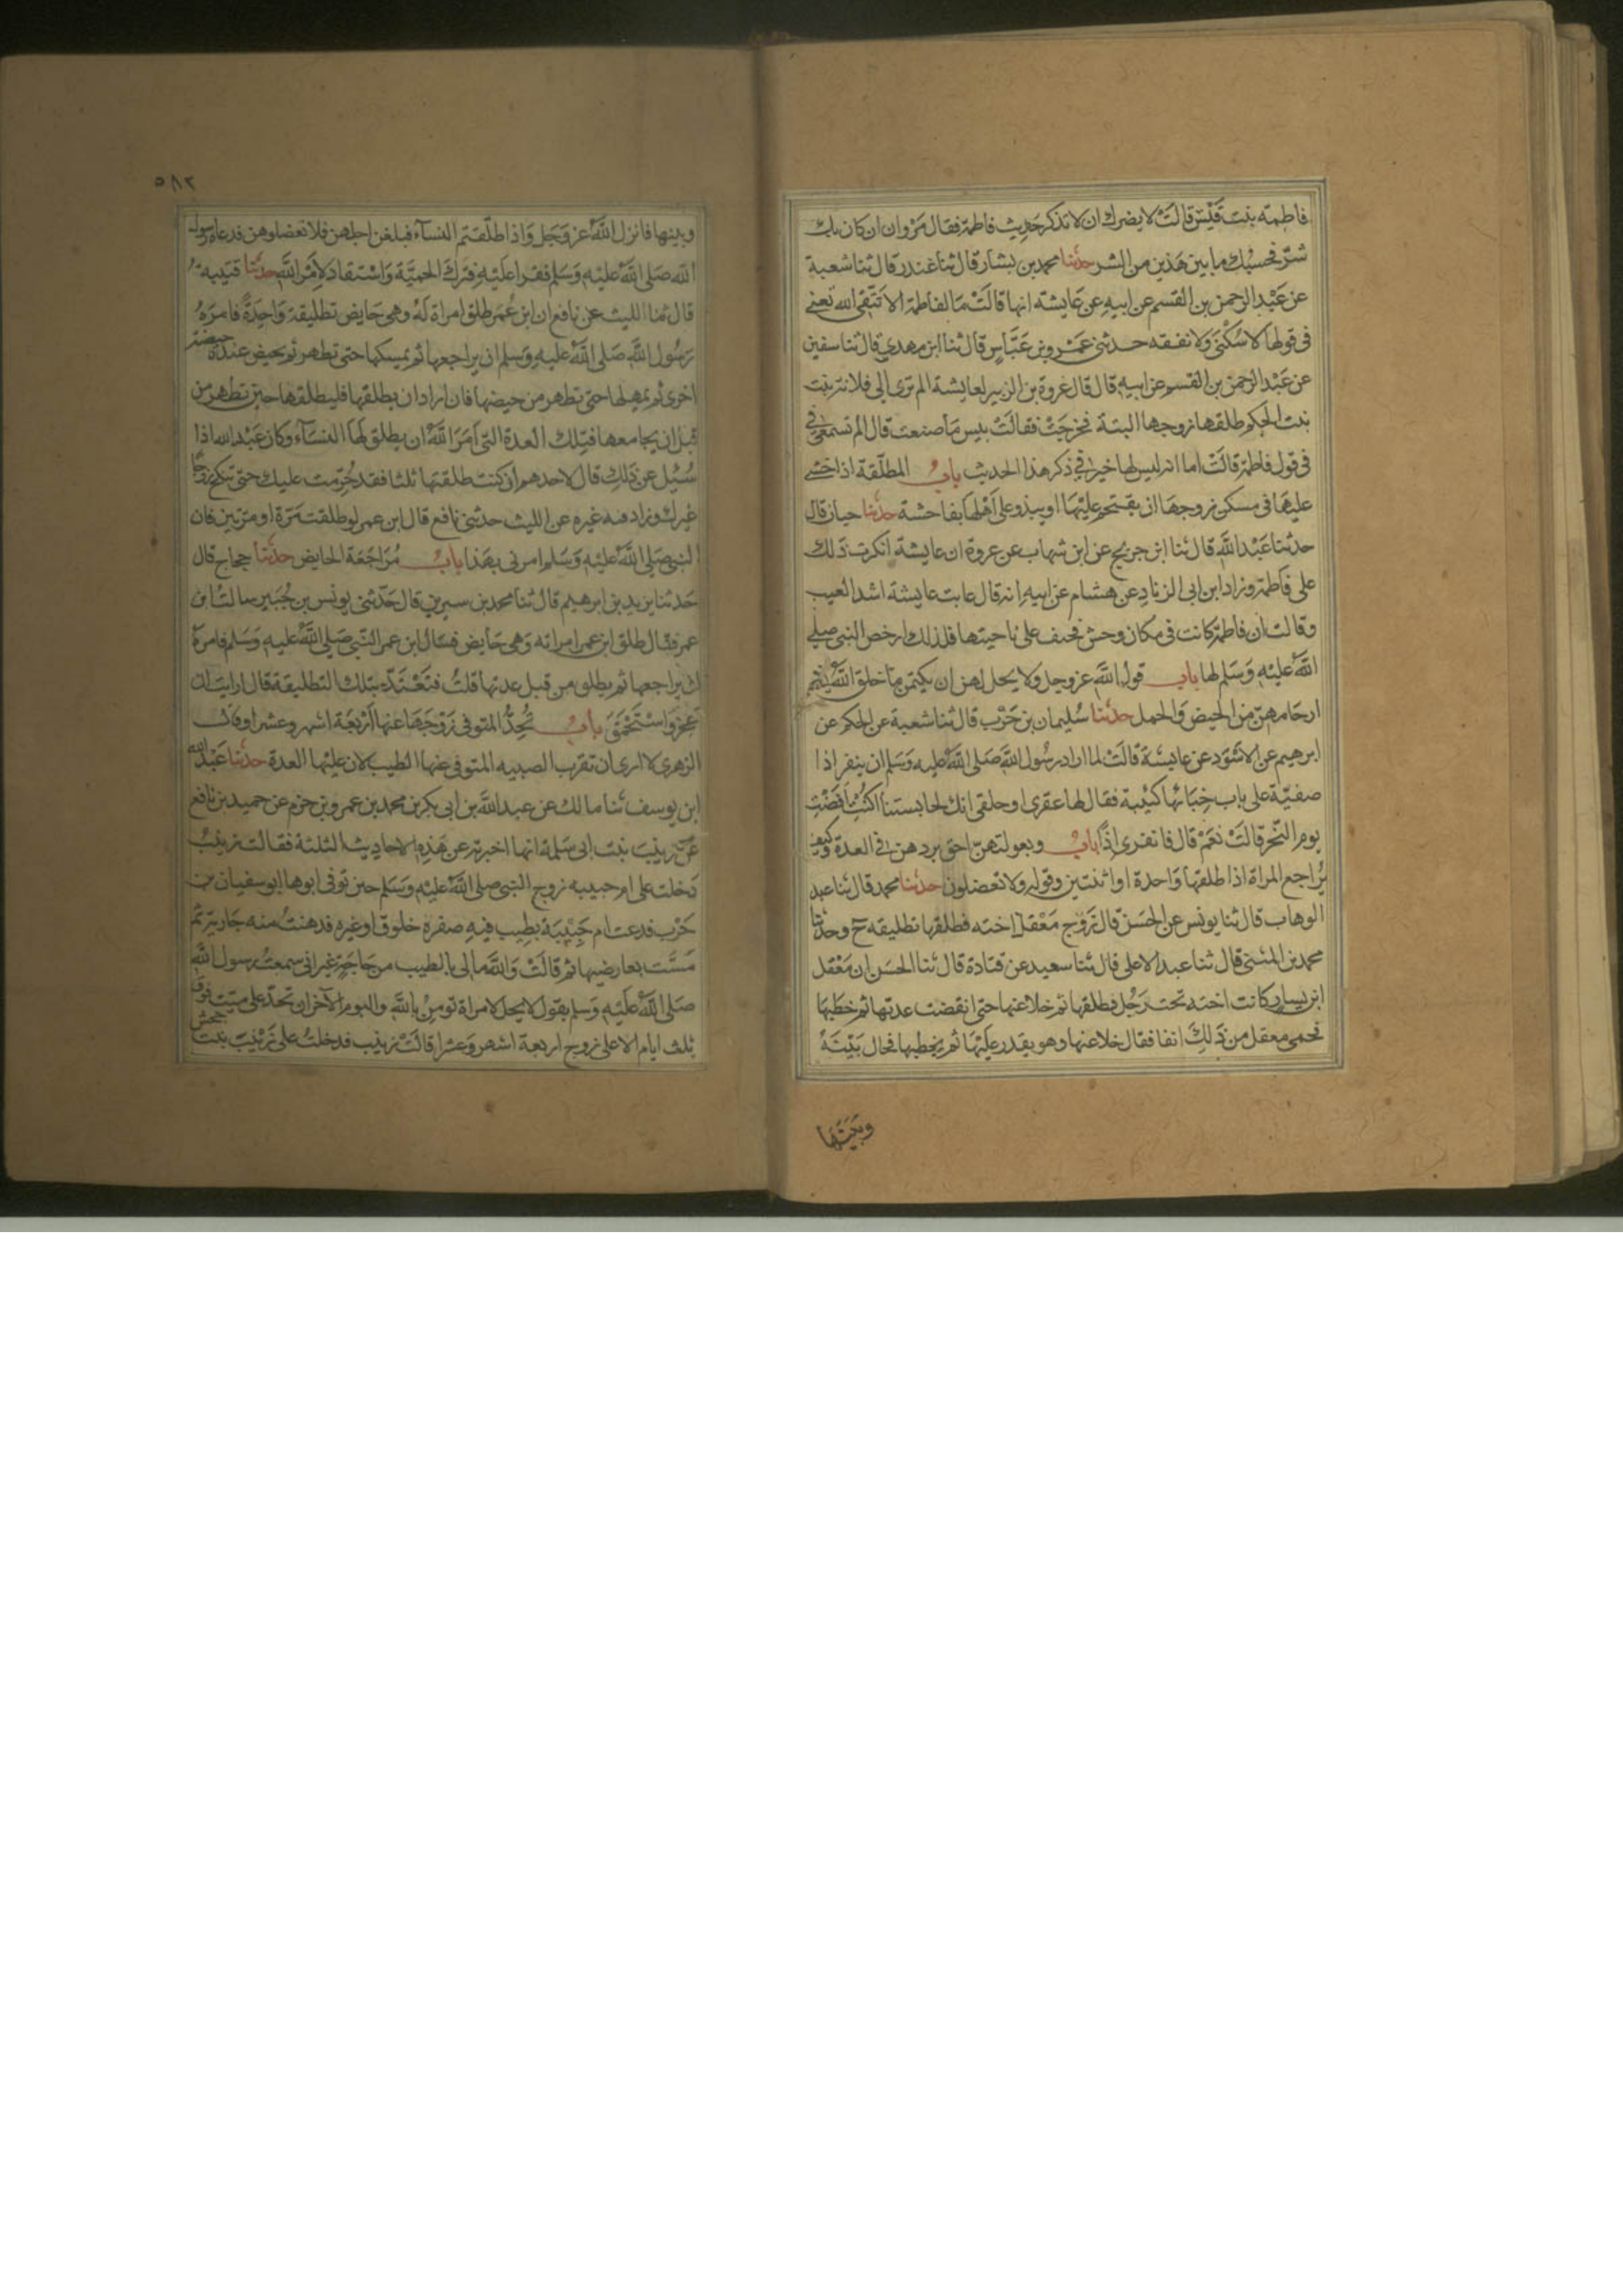 فاطمة بنت قيس قالت لا يضرك ان لا تذكر حديث فاطمة فقال مروان ان كان بك
شر فحسبك ما بين هذين من الشر حدثنا محمد بن بشار قال ثنا غندر قال ثنا شعبة
عن عبد الرحمن بن القسم عن ابيه عن عايشة انها قالت ما لفاطمة الا تتقي الله تعني
في قولها لا سكنى ولا نفقه حدثني عمرو بن عباس قال ثنا ابن مهدي قال ثنا سفين
عن عبد الرحمن بن القسم عن ابيه قال قال عروة بن الزبير لعايشة الم ترى الى فلانة بنت
بنت الحكم طلقها زوجها البتة فخرجت فقالت بيس ما صنعت قال الم تسمعي في
في قول فاطمة قالت اما انه ليس لها خير في ذكر هذا الحديث باب المطلقة اذا خشي
عليها في مسكن زوجها ان يقتحم عليها او يبذو على اهلها بفاحشة حدثنا حبان قال
حدثنا عبد الله قال ثنا ابن جريج عن ابن شهاب عن عروة ان عايشة انكرت ذلك
على فاطمة وزاد ابن ابي الزناد عن هشام عن ابيه انه قال عابت عايشة اشد العيب
وقالت ان فاطمة كانت في مكان وحش فخيف على ناحيتها فلذلك ارخص النبي صلى
الله عليه وسلم لها باب قول الله عز وجل ولا يحل لهن ان يكتمن ما خلق الله في
ارحامهن من الحيض والحمل حدثنا سليمان بن حرب قال ثنا شعبة عن الحكم عن
ابرهيم عن الاسود عن عايشة قالت لما اراد رسول الله صلى الله عليه وسلم ان ينفر اذا
صفية على باب خبائها كئيبة فقال لها عقرى او حلقى انك لحابستنا اكنت افضت
يوم النحر قالت نعم قال فانفري اذا باب وبعولتهن احق بردهن في العدة وكيف
يراجع المراة اذا طلقها واحدة او اثنتين وقوله ولا تعضلون حدثنا محمد قال ثنا عبد
الوهاب قال ثنا يونس عن الحسن قال زوج معقل اخته فطلقها تطليقه ح وحدثنا
محمد بن المثنى قال ثنا عبد الاعلى قال ثنا سعيد عن قتادة قال ثنا الحسن ان معقل
ابن يسار كانت اخته تحت رجل فطلقها ثم خلا عنها حتى انقضت عدتها ثم خطبها
فحمى معقل من ذلك انفا فقال خلا عنها وهو يقدر عليها ثم يخطبها فحال بينه
وبينها
٥٨٢
وبينها فانزل الله عز وجل واذا طلقتم النسآء فبلغن اجلهن فلا تعضلوهن فدعاه رسول
الله صلى الله عليه وسلم فقرا عليه فترك الحمية واستقاد لامر الله حدثنا قتيبة
قال ثنا الليث عن نافع ان ابن عمر طلق امراة له وهي حايض تطليقة واحدة فامره
رسول الله صلى الله عليه وسلم ان يراجعها ثم يمسكها حتى تطهر ثم تحيض عنده حيضة
اخرى ثم يمهلها حتى تطهر من حيضها فان اراد ان يطلقها فليطلقها حين تطهر من
قبل ان يجامعها فتلك العدة التي امر الله ان يطلق لها النسآء وكان عبد الله اذا
سئيل عن ذلك قال لاحدهم ان كنت طلقتها ثلثا فقد حرمت عليك حتى تنكح زوجا
غيرك وزاد فيه غيره عن الليث حدثني نافع قال ابن عمر لو طلقت مرة او مرتين فان
النبي صلى الله عليه وسلم امرني بهذا باب مراجعة الحايض حدثنا حجاج قال
حدثنا يزيد بن ابرهيم قال ثنا محمد بن سيرين قال حدثني يونس بن جبير سالت ابن
عمر فقال طلق ابن عمر امراته وهي حايض فسال ابن عمر النبي صلى الله عليه وسلم فامره
ان يراجعها ثم يطلق من قبل عدتها قلت فتعتد بتلك التطليقة قال ارايت ان
عجز واستحمق باب تحد المتوفى زوجها عنها اربعة اشهر وعشرا وقال
الزهري لا ارى ان تقرب الصبيه المتوفى عنها الطيب لان عليها العدة حدثنا عبد الله
ابن يوسف ثنا مالك عن عبد الله بن ابي بكر بن محمد بن عمرو بن حزم عن حميد بن نافع
عن زينب بنت ابي سلمة انها اخبرته عن هذه الاحاديث الثلثة فقالت زينب
دخلت على ام حبيبه زوج النبي صلى الله عليه وسلم حين توفى ابوها ابو سفيان بن
حرب فدعت ام حبيبة بطيب فيه صفرة خلوق او غيره فدهنت منه جارية ثم
مست بعارضيها ثم قالت والله مالى بالطيب من حاجة غير اني سمعت رسول الله
صلى الله عليه وسلم يقول لا يحل لامراة تومن بالله واليوم الاخر ان تحد على ميت فوق
ثلث ايام الا على زوج اربعة اشهر وعشرا قالت زينب فدخلت على زينب بنت جحش